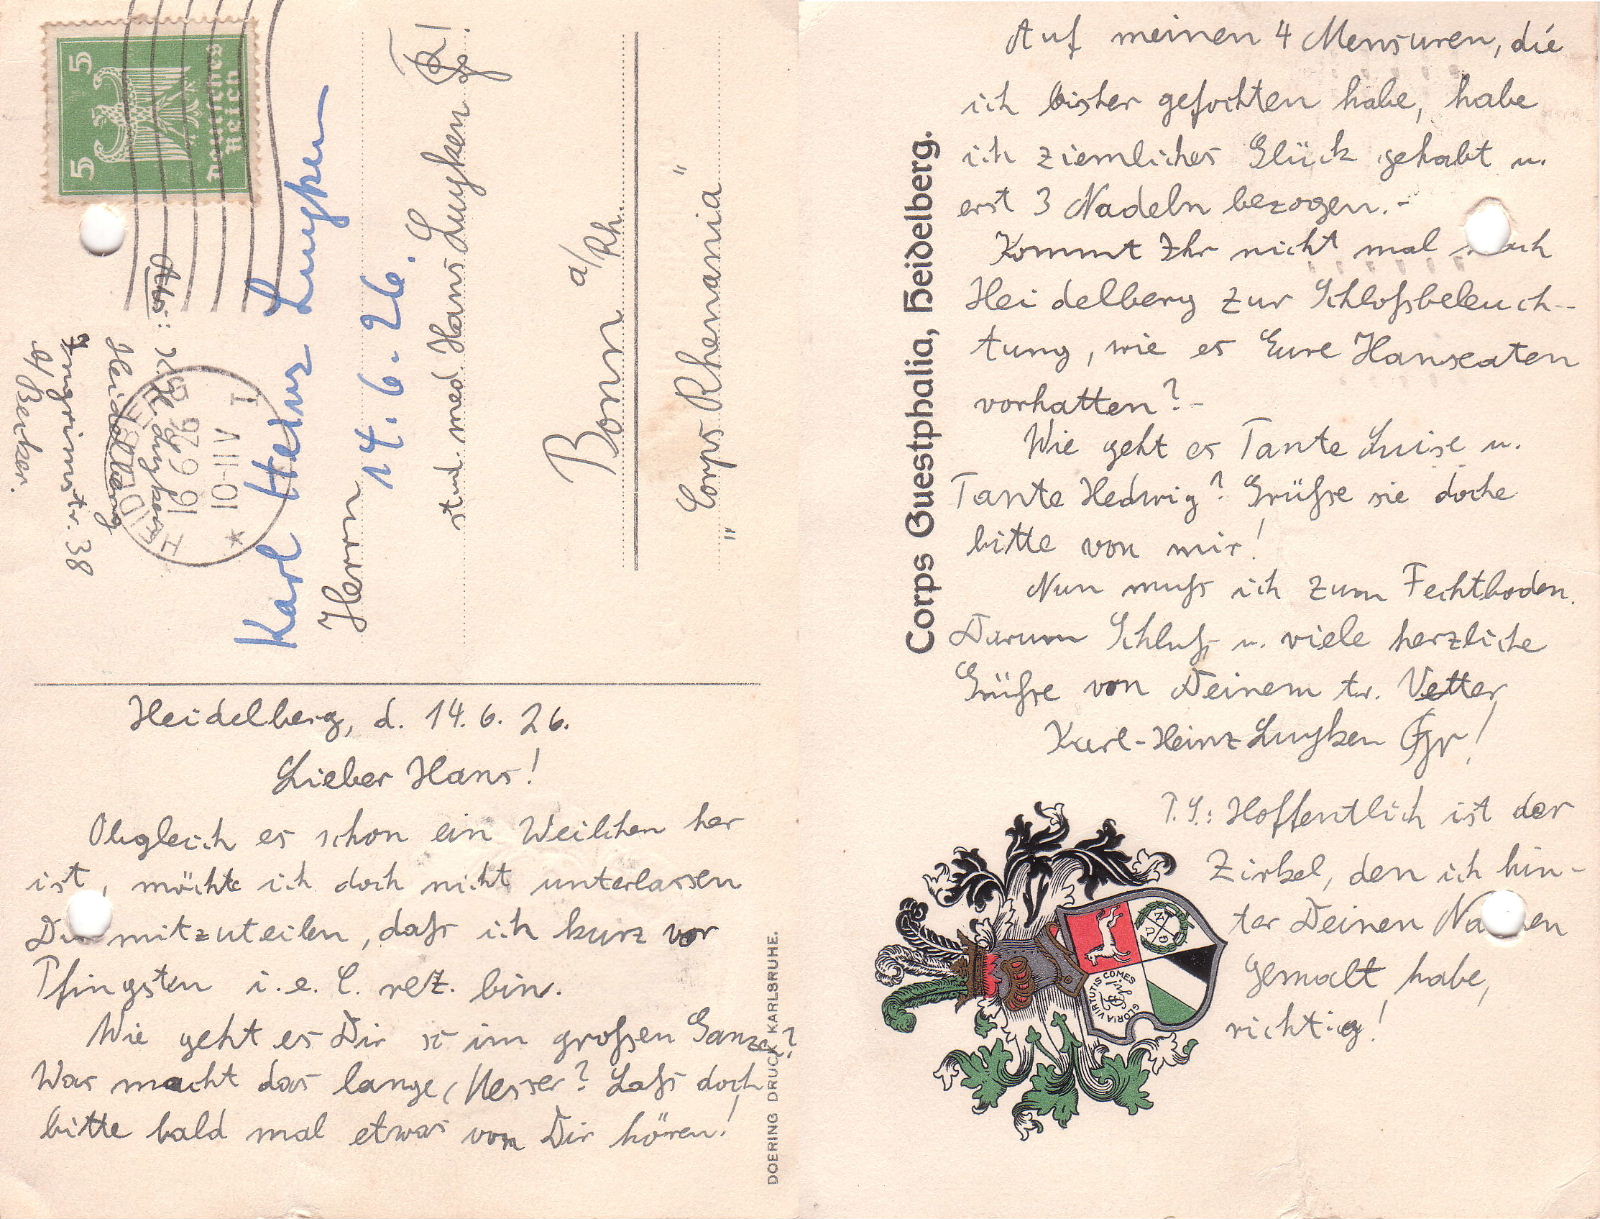 5
5
Deutsches
Reich
HEIDELBERG
16.6.26
10-11 V
Abs.: K. H. Luyken
Heidelberg
Ingrimstr. 38
b/ Becker.
Karl Heinz Luyken
14.6.26.
Herrn
stud. med. Hans Luyken
Bonn a/Rh.
"Corps Rhenania"
Heidelberg, d. 14.6.26.
Lieber Hans!
Obgleich es schon ein Weilchen her
ist, möchte ich doch nicht unterlassen
Dir mitzuteilen, daß ich kurz vor
Pfingsten i. e. C. rez. bin.
Wie geht es Dir so im großen Ganzen?
Was macht das lange Messer? Laß doch
bitte bald mal etwas von Dir hören!
DOERING DRUCK KARLSRUHE.
Corps Guestphalia, Heidelberg.
Auf meinen 4 Mensuren, die
ich bisher gefochten habe, habe
ich ziemliches Glück gehabt u.
erst 3 Nadeln bezogen.-
Kommt Ihr nicht mal nach
Heidelberg zur Schloßbeleuch-
tung, wie es Eure Hanseaten
vorhatten?-
Wie geht es Tante Luise u.
Tante Hedwig? Grüße sie doche
bitte von mir!
Nun muß ich zum Fechtboden.
Darum Schluß u. viele herzliche
Grüße von Deinem tr. Vetter
Karl-Heinz Luyken
P.S.: Hoffentlich ist der
Zirkel, den ich hin-
ter Deinen Namen
gemalt habe,
richtig!
GLORIA VIRTUTIS COMES